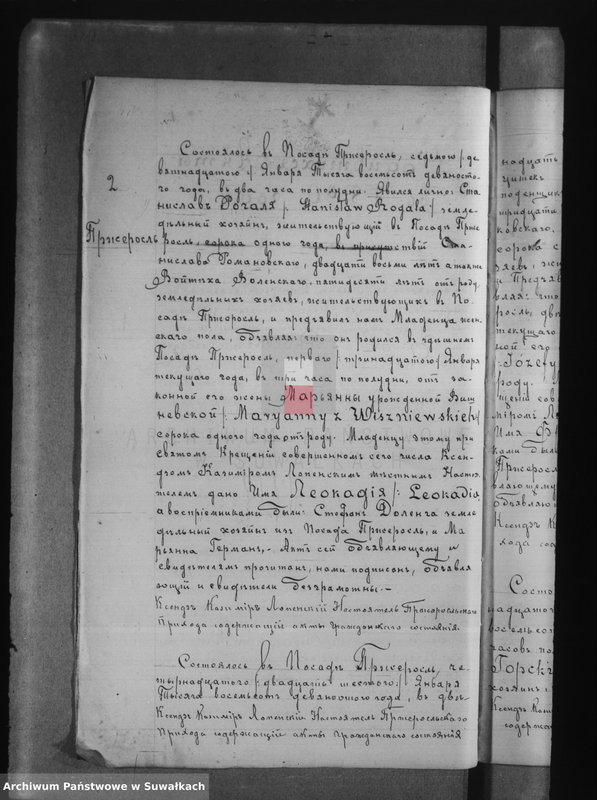 2
Пржеросль
Состоялось въ Посадѣ Пржеросль, седьмого /: де
вятнадцатого :/ Января Тысяча восемьсотъ девяносто
го года, въ два часа по полудни. Явился лично: Ста
ниславъ Рогаля /: Stanisław Rogala :/ земле
дѣльный хозяинъ, жительствующій въ Посадѣ Прже
росль, сорока одного года, въ присутствіи Ста
нислава Романовскаго, двадцати восьми лѣтъ а также
Войтѣха Воленскаго, пятидесяти лѣтъ отъ роду,
земледѣльныхъ хозяевъ, жительствующихъ въ По
садѣ Пржеросль, и предъявилъ намъ Младенца жен
скаго пола, объявляя что онъ родился въ здѣшнемъ
Посадѣ Пржеросль, перваго /: тринадцатого :/ Января
текущаго года, въ три часа по полудни, отъ за
конной его жены Марьянны урожденной Виш
невской /: Maryanny z Wiszniewskich :/
сорока одного года отъ роду. Младенцу этому при
святомъ Крещеніи совершенномъ сего числа Ксен
дзомъ Казиміромъ Лопенскимъ мѣстнымъ Насто
телемъ дано Имя Леокадія /: Leokadia
а воспріемниками были: Стефанъ Доленга земле
дѣльный хозяинъ изъ Посада Пржеросль, и Ма
рьянна Германъ. - Актъ сей объявляющему и
свидѣтелямъ прочитанъ, нами подписанъ, объявля
ющій и свидѣтели безграмотны. -
Ксендзъ Казиміръ Лопенскій Настоятель Пржеросльскаго
Прихода содержащій акты гражданскаго состоянія
Состоялось въ Посадѣ Пржеросль, че
тырнадцатого /: двадцать шестого :/ Января
Тысяча восемьсотъ девяностого года, въ два
Ксендзъ Казиміръ Лопенскій Настоятель Пржеросльскаго
Прихода содержащій акты гражданскаго состоянія
Archiwum Państwowe w Suwałkach